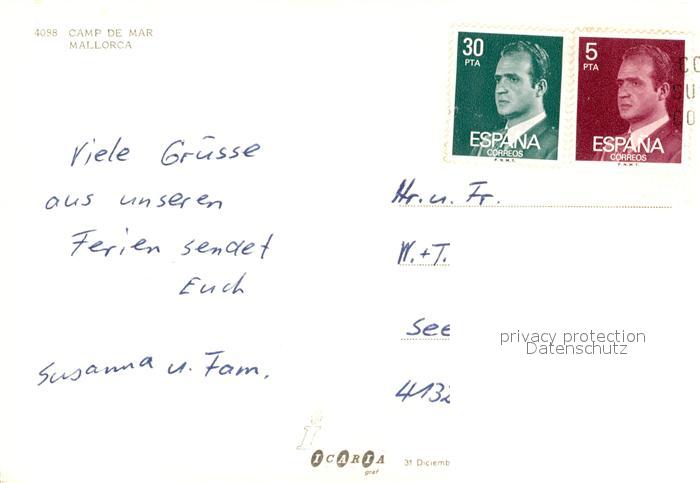 4098 CAMP DE MAR
MALLORCA
30
PTA
ESPAÑA
CORREOS
F.N.M.T.
5
PTA
ESPAÑA
CORREOS
F.N.M.T.
Viele Grüsse
aus unseren
Ferien sendet
Euch
Susanna u. Fam.
Hr. u. Fr.
W.+T.
See
4132
privacy protection
Datenschutz
ICARIA
graf
31 Diciemb